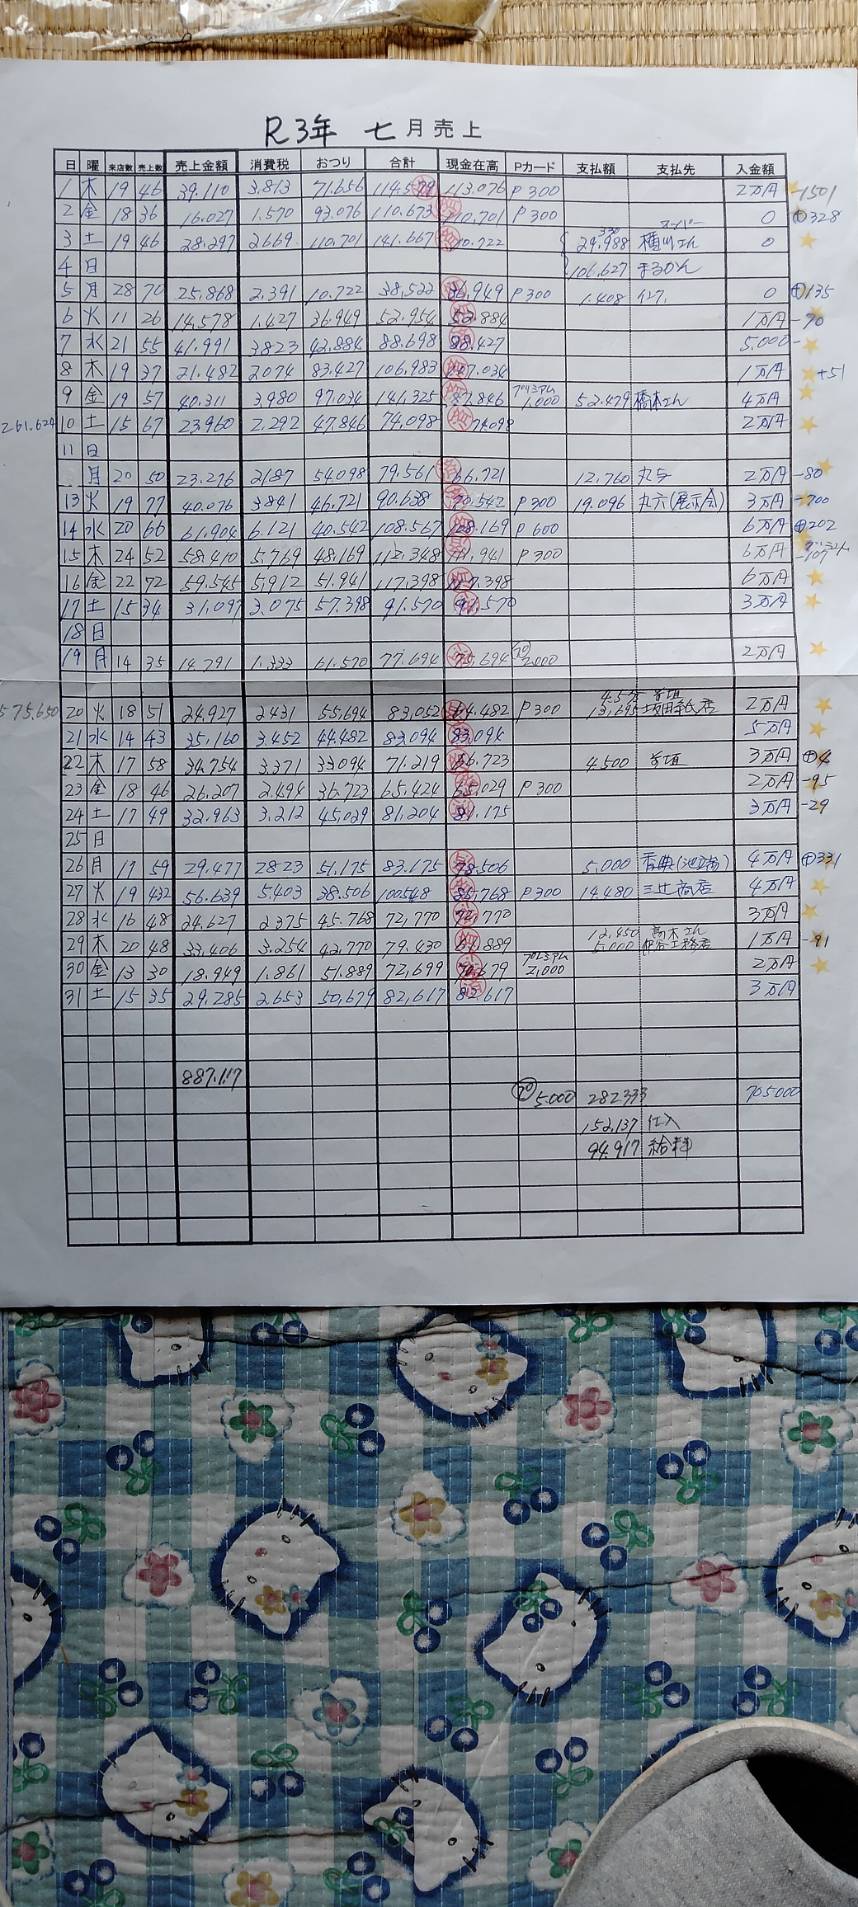 R3年 七月売上
日 曜 来店数 売上数 売上金額 消費税 おつり 合計 現金在高 Pカード 支払額 支払先 入金額
1 木 19 46 39.110 3.813 71.656 114.579 113.076 P300 2万円 -1501
2 金 18 36 16.027 1.570 93.076 110.673 110.701 P300 0 ⊕328
3 土 19 46 28.297 2.669 110.701 141.667 10.722 29.988 0
4 日 106.627 まるかん
5 月 28 70 25.868 2.391 10.722 38,522 36,949 P300 1.408 0 ⊕135
6 火 11 26 14,578 1.427 36.949 52.954 52.884 1万円 -70
7 水 21 55 41.991 3823 42.884 88.698 88.427 5.000
8 木 19 37 21.482 2074 83.427 106,983 107.034 1万円 +51
9 金 19 57 40.311 3,980 97.034 141.325 87.846 プリミアム 1,000 52.479 橋本さん 4万円
261.624 10 土 15 67 23960 2.292 47.846 74.098 74098 2万円
11 日
月 20 50 23.276 2187 54098 79.561 66.721 12.760 丸与 2万円 -80
13 火 19 77 40.076 3841 46.721 90.638 70.542 P300 19.096 丸六(展示会) 3万円 -700
14 水 20 66 61.904 6.121 40.542 108.567 108.169 P600 6万円 ⊕202
15 木 24 52 58.410 5.769 48.169 112.348 111.941 P300 6万円 -107
16 金 22 72 59.545 5,912 51.941 117.398 117.398 6万円
17 土 15 34 31.097 3.075 57.398 91.570 91.570 3万円
18 日
19 月 14 35 14.791 1.333 61.570 77.694 75.694 2.000 2万円
575.650 20 火 18 51 24.927 2431 55.694 83,052 64.482 P300 13,695 坂田紙店 2万円
21 水 14 43 35.160 3.452 44.482 83.094 83.094 5万円
22 木 17 58 34.754 3.371 33.094 71.219 66.723 4.500 3万円 ⊕4
23 金 18 46 26.207 2.494 36.723 65.424 65.029 P300 2万円 -95
24 土 17 49 32.963 3.212 45.029 81.204 81.175 3万円 -29
25 日
26 月 17 59 29.477 2823 51.175 83.175 78.506 5,000 香典 4万円 ⊕331
27 火 19 432 56.639 5.403 38.506 100548 85,768 P300 14.480 三辻商店 4万円
28 水 16 48 24.627 2.375 45.768 72,770 72,770 3万円
29 木 20 48 33.406 3.254 42.770 79.430 61.889 12.450 高木さん 5.000 1万円 -91
30 金 13 30 18.949 1.861 51.889 72,699 70.679 2,000 2万円
31 土 15 35 29.285 2.653 50,679 82,617 82.617 3万円
887.117
5.000 282333 705000
152,137 仕入
94.917 給料